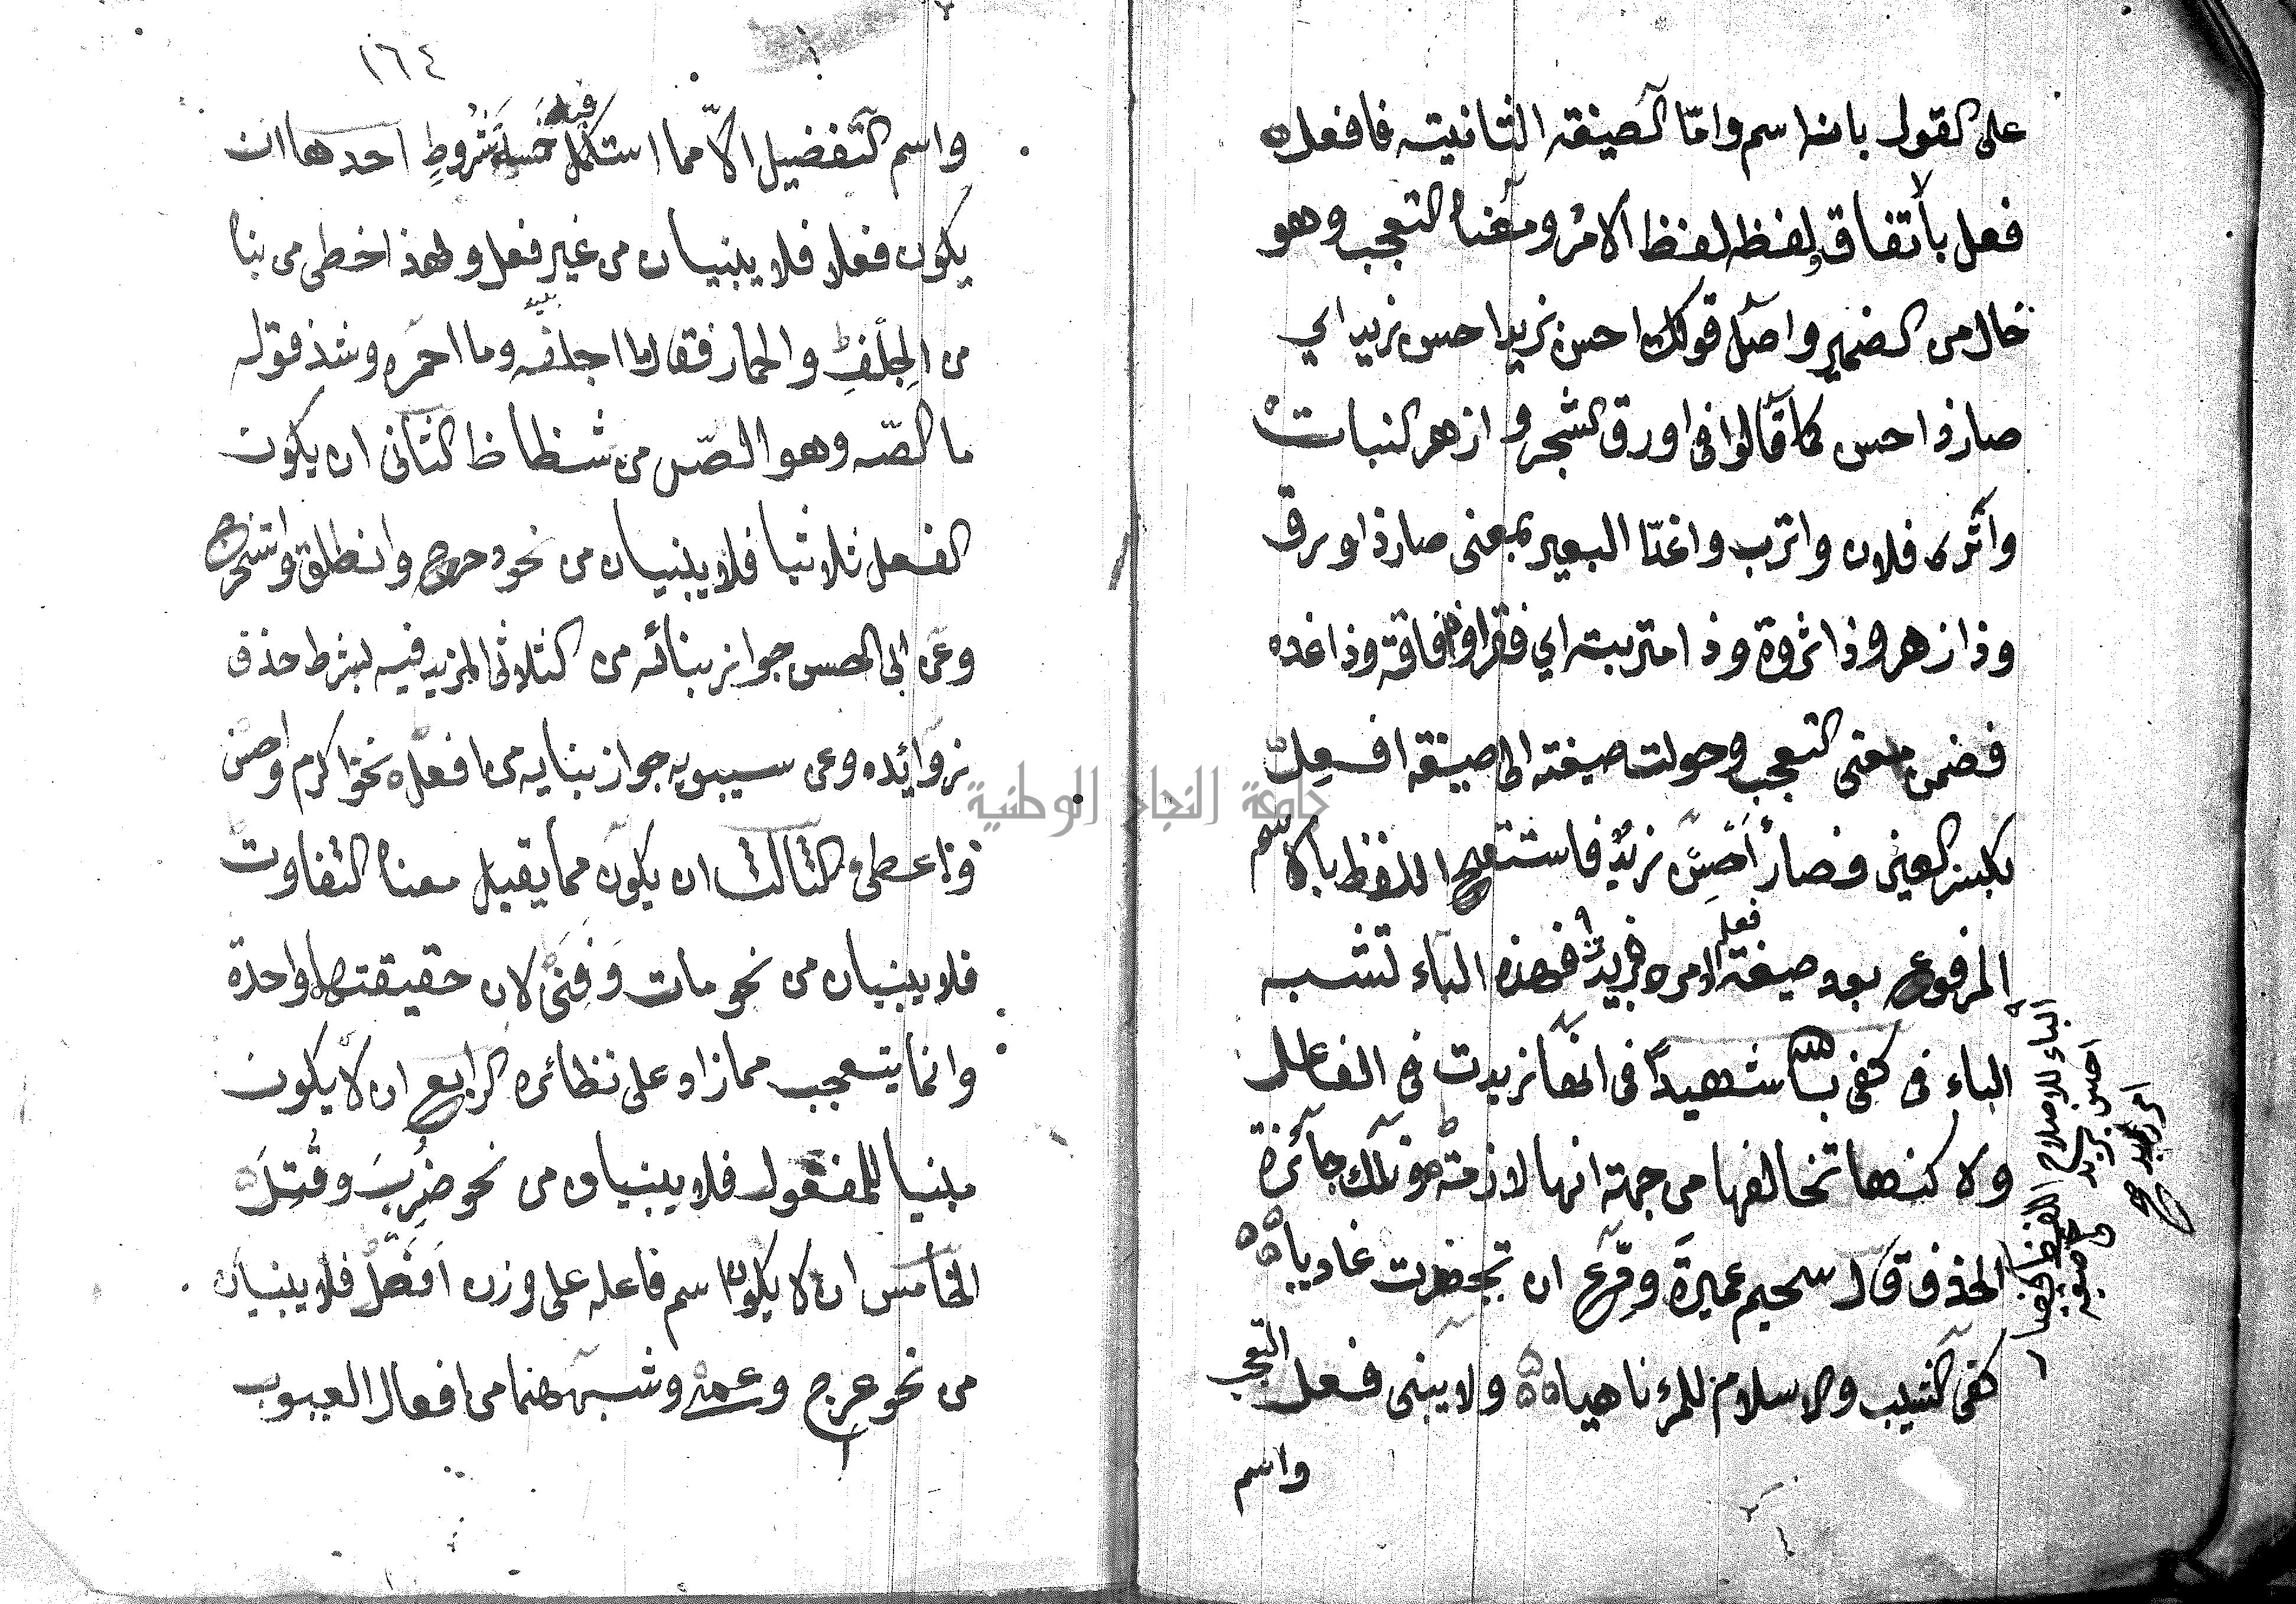 على القول بانه اسم واما الصيغة الثانية فافعل
فعل بأتفاق لفظه لفظ الامر ومعناه التعجب وهو
خال من الضمير واصل قولك احسن بزيد احسن زيد اي
صار ذا حسن كما قالوا في اورق الشجر و ازهر النبات
واثرى فلان واترب واغدّ البعير بمعنى صار ذا ورق
وذا زهر وذا ثروة وذا متربة اي فقر او فاقة وذا غده
فضمن معنى التعجب وحولت صيغته الى صيغة افعل
بكسر العين فصار أحسِن زيدٌ فاستقبح اللفظ بالاسم
المرفوع بعد صيغة فعل الامر فزيدت فهذه الباء تشبه
الباء في كفى بالله شهيدًا في انها زيدت في الفاعل
ولاكنها تخالفها من جهة انها لازمة وتلك جائزة
الحذف قال سحيم عميرة ودّع ان تجهزت غاديا
كفى الشيب والاسلام للمرء ناهيا ولا يبنى فعل التعجب
واسم
الباء للاصلاح اللفظ فصار
احسن بزيد في صيغة
امرر بزيد
١٦٤
واسم التفضيل الاّ مما استكمل فيه خمسة شُروطٍ احدها ان
يكون فعلا فلا يبنيان من غير فعل ولهذا خطى من بنا
من الجِلْفِ والحمار فقال ما اجلفه وما احمره وشذ قوله
ما الصّه وهو الصّ من شظاظ الثاني ان يكون
الفعل ثلاثيا فلا يبنيان من نحو دحرج وانطلق واستخرج
وعن ابي الحسن جواز بنائه من الثلاثي المزيد فيه بشرط حذف
زوائده وعن سيبويه جواز بنايه من افعل نحو اكرم واحسن
واعطى الثالث ان يكون مما يقبل معناه التفاوت
فلا يبنيان من نحو مات وَفِنَى لان حقيقتهما واحدة
وانما يتعجب مما زاد على نظائره الرابع ان لا يكون
مبنيا للمفعول فلا يبنيان من نحو ضُرِبَ وقُتِلَ
الخامس ان لا يكون اسم فاعله على وزن اَفْعَلْ فلا يبنيان
من نحو عرج وعمى وشبههما من افعال العيوب
جامعة النجاح الوطنية